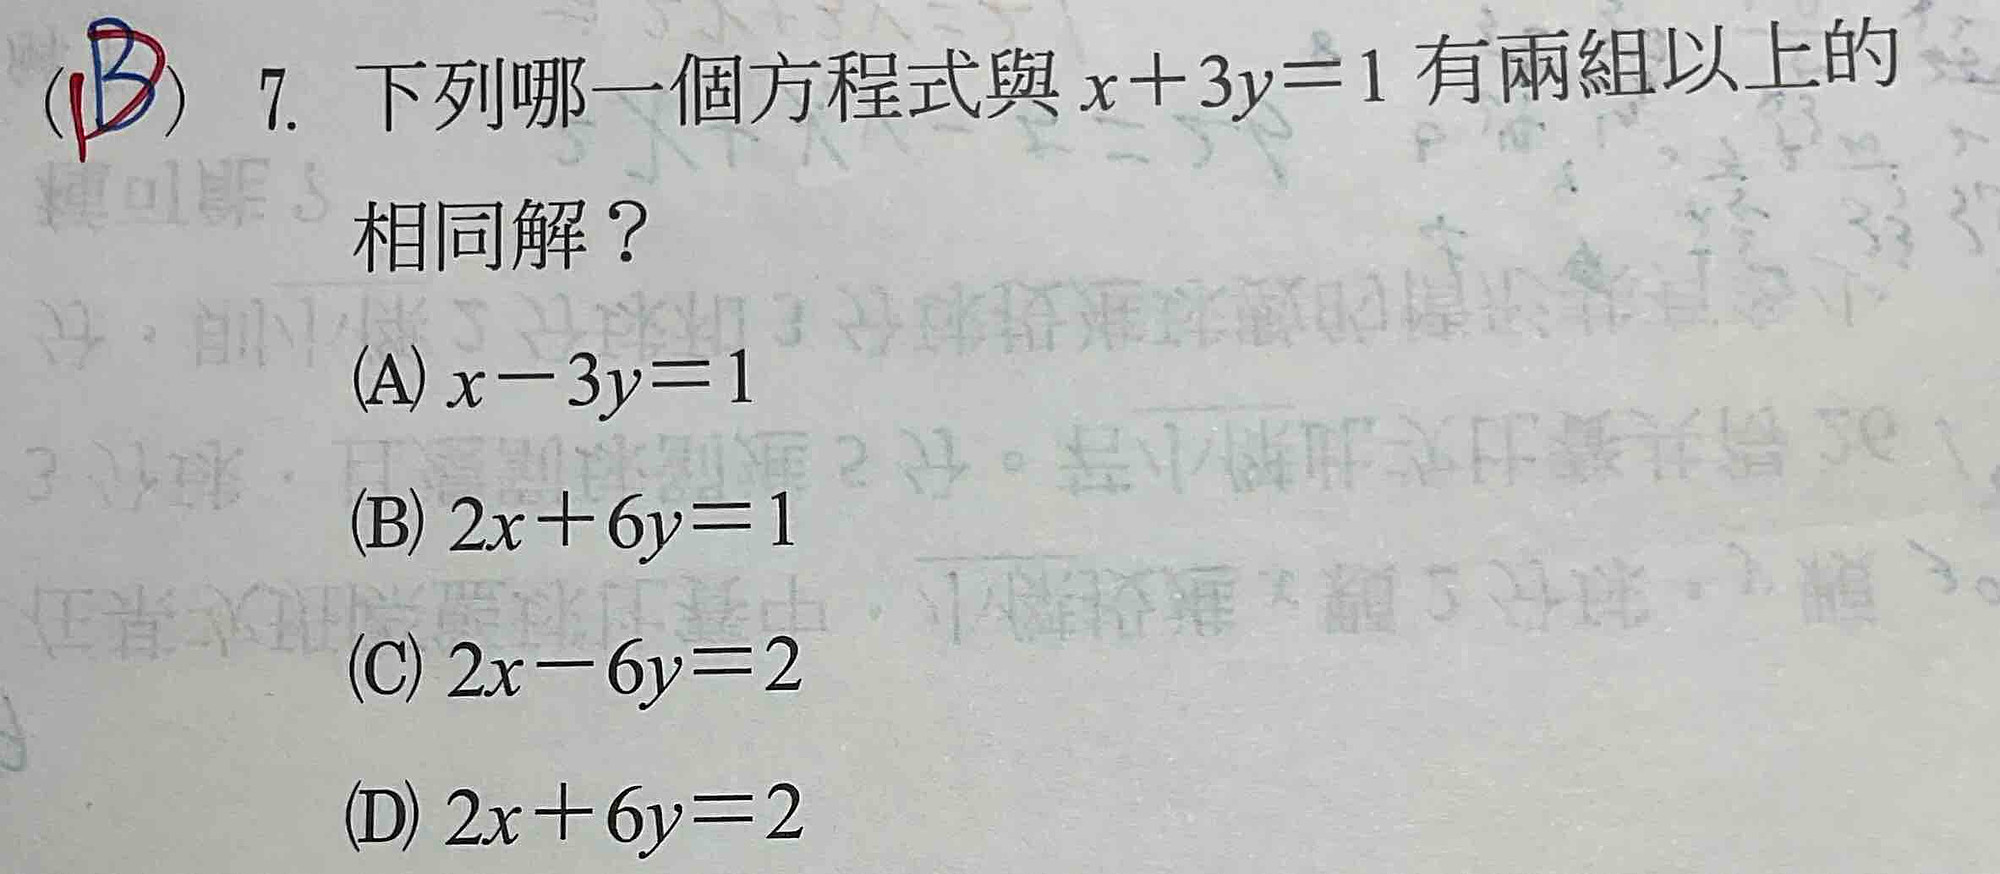 (B) 7. 下列哪一個方程式與 x＋3y＝1 有兩組以上的
相同解？
(A) x－3y＝1
(B) 2x＋6y＝1
(C) 2x－6y＝2
(D) 2x＋6y＝2